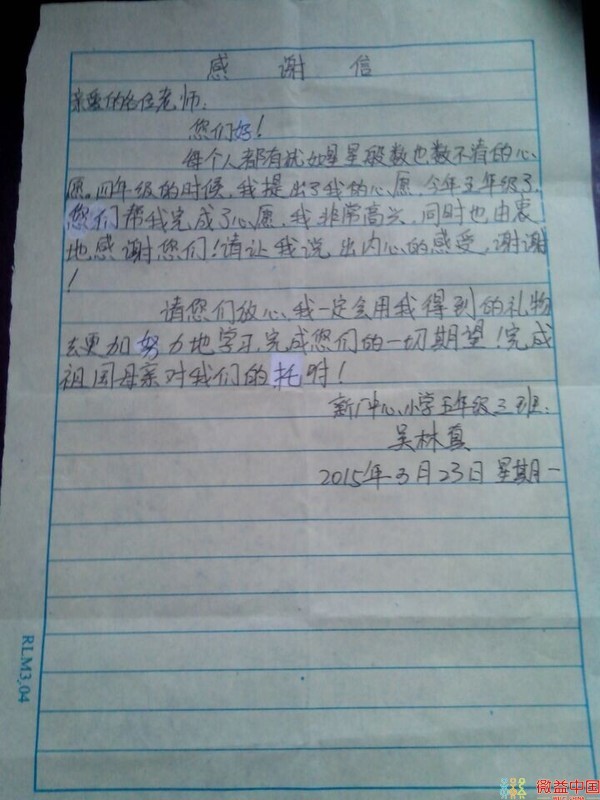 感谢信
亲爱的各位老师：
您们好！
每个人都有犹如星星般数也数不清的心
愿。四年级的时候，我提出了我的心愿，今年五年级了，
您们帮我完成了心愿，我非常高兴，同时也由衷
地感谢您们！请让我说出内心的感受，谢谢
！
请您们放心，我一定会用我得到的礼物
去更加努力地学习，完成您们的一切期望！完成
祖国母亲对我们的托咐！
新广中心小学五年级三班：
吴林真
2015年3月23日星期一
RLM3.04
微益中国